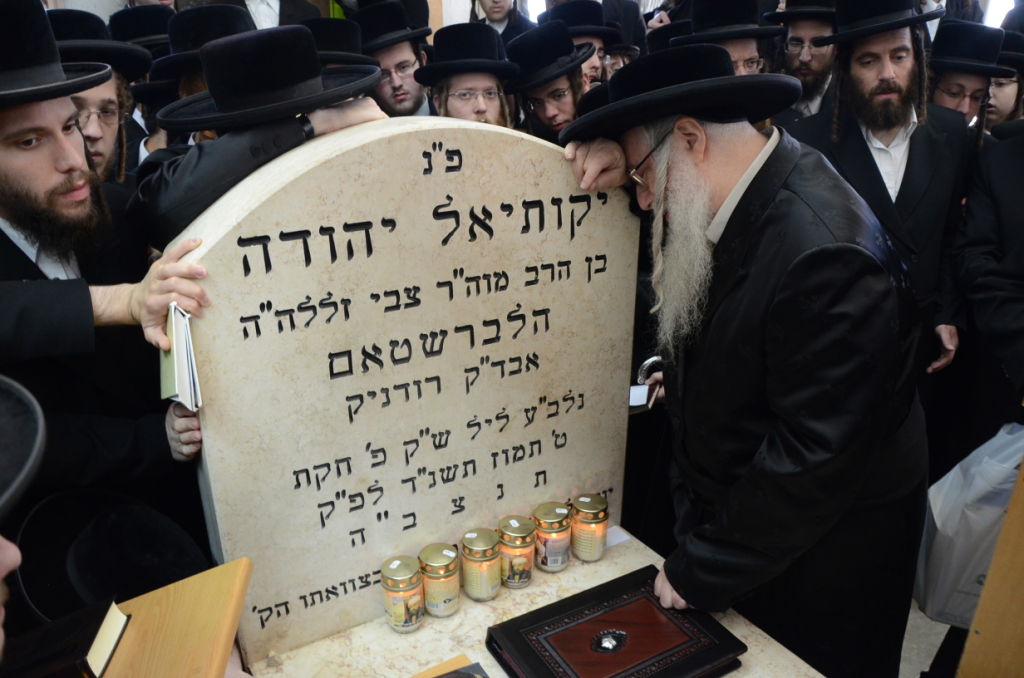 פ"נ
יקותיאל יהודה
בן הרב מוה"ר צבי זללה"ה
הלברשטאם
אבד"ק רודניק
נלב"ע ליל ש"ק פ' חקת
ט' תמוז תשנ"ד לפ"ק
ת נ צ ב "ה
בצוואתו הק'